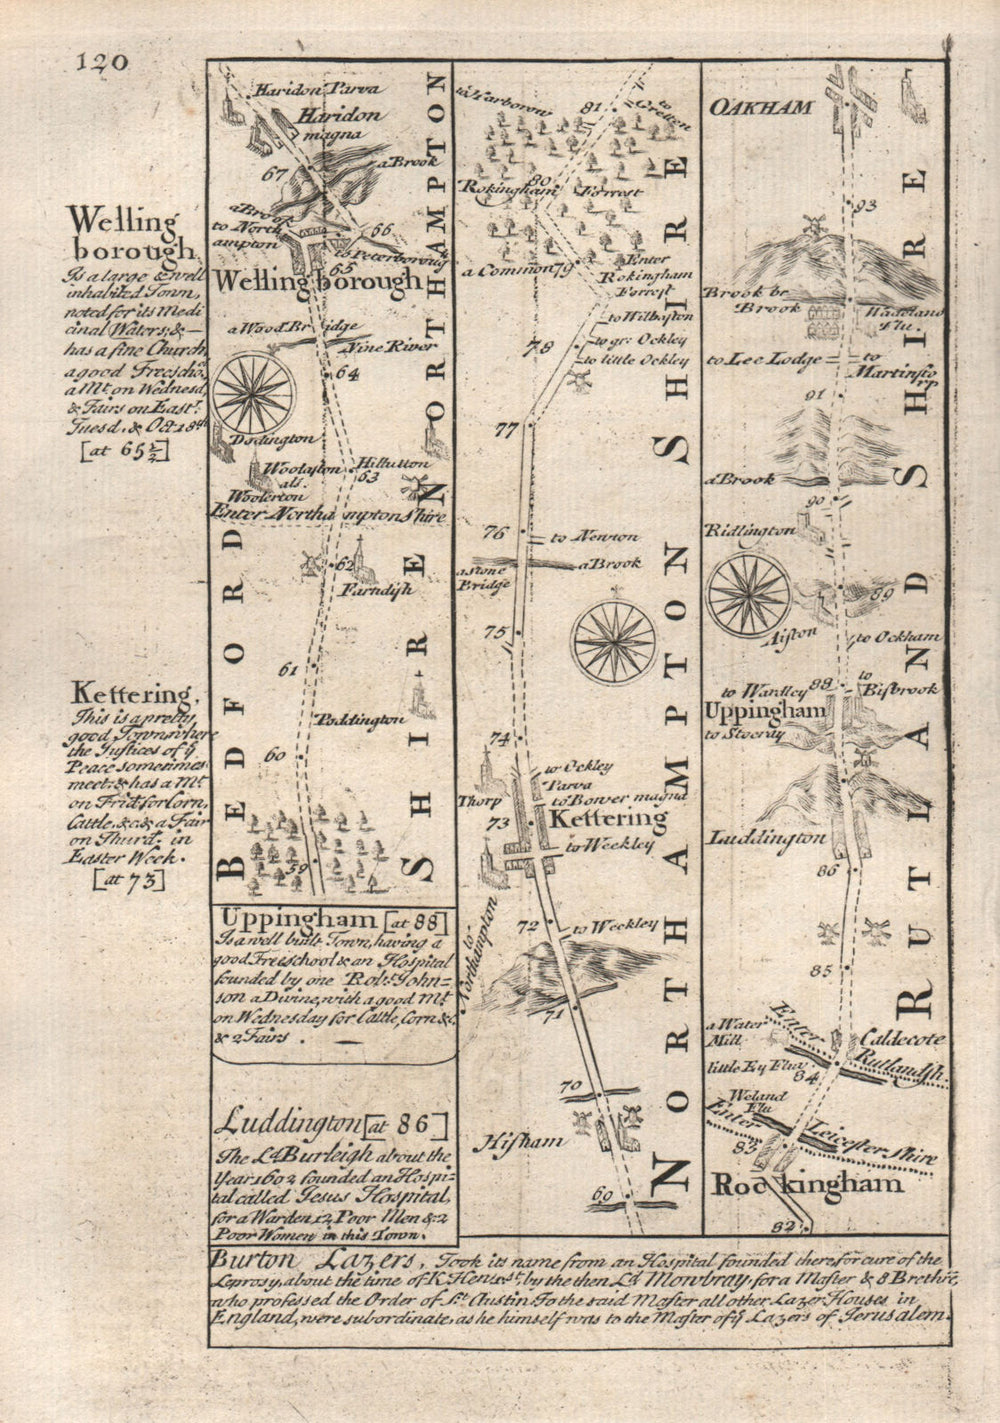 120
Welling
borough
Is a large & well
inhabited Town,
noted for its Medi
cinal Waters, &
has a fine Church
a good Freescho.
a Mt. on Wednesd.
& Fairs on East.r
Tuesd. & Oct. 18th
[at 65½]
Kettering,
This is a pretty
good Town where
the Justices of ye
Peace sometimes
meet, & has a Mt.
on Frid. for Corn,
Cattle, &c. & a Fair
on Thurd. in
Easter Week.
[at 73]
Haridon Parva
Haridon
magna
67
a Brook
a Brook
to North
ampton
66
to Peterborough
65
Wellingborough
a Wood Bridge
Nine River
64
Dodington
Woolaston
als.
Woolerton
Hillutton
63
Enter Northamptonshire
62
Farndish
61
Poddington
60
59
BEDFORD SHIRE
NORTHAMPTON
Uppingham [at 88]
Is a well built Town, having a
good Freeschool & an Hospital
founded by one Robt. John=
son a Divine, with a good Mt.
on Wednesday for Cattle, Corn &c.
& 2 Fairs.
Luddington [at 86]
The Ld. Burleigh about the
Year 1602 founded an Hospi=
tal called Jesus Hospital,
for a Warden 12 Poor Men & 2
Poor Women in this Town.
to Harborow
81
to
Gretton
80
Rokingham
Forrest
a Common
79
Enter
Rokingham
Forrest
to Wilbaston
78
to gr: Ockley
to little Ockley
77
76
to Newton
a stone
Bridge
a Brook
75
74
to Ockley
Parva
Thorp
to Bower magna
73
Kettering
to Weekley
72
to Weekley
to
Northampton
71
70
Hisham
69
NORTHAMPTON SHIRE
OAKHAM
93
Brook br.
Brook
Wadeland
Flu.
to Lee Lodge
to
Martinsto
rp
91
a Brook
90
Ridlington
89
Aiston
to Ockham
88
to Wardley
to
Bisbrook
Uppingham
to Stoerdy
Luddington
86
85
a Water
Mill
Enter
Caldecote
Rutlandsh.
little Ey Flu.
84
Weland
Flu
Enter
Leicestershire
83
Rockingham
82
RUTLAND SHIRE
Burton Lazers, Took its name from an Hospital founded there for cure of the
Leprosy, about the time of K. Hen. 1st. by the then Ld. Mowbray, for a Master & 8 Brethre,
who professed the Order of St. Austin. To the said Master all other Lazer Houses in
England, were subordinate, as he himself was to the Master of ye Lazers of Jerusalem.